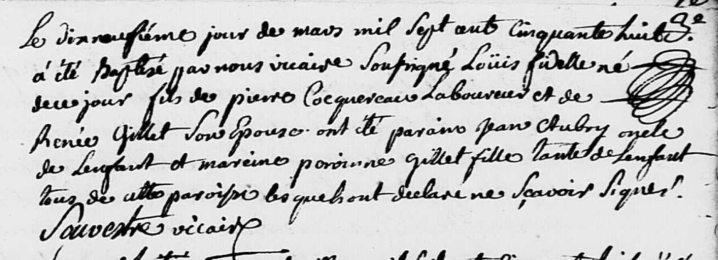 Le dixneufiéme jour de mars mil sept cent cinquante huit 3.e
a été Baptisé par nous vicaire soussigné Loüis fidelle né
de ce jour fils de pierre Cocquereau Laboureur et de
Renée Gillet son Epouse. ont été parain Jean Aubry oncle
de Lenfant et mareine gillet fille tante de Lenfant
tous de cette paroisse lesquels ont declaré ne sçavoir signer.
Sauvestre vicaire